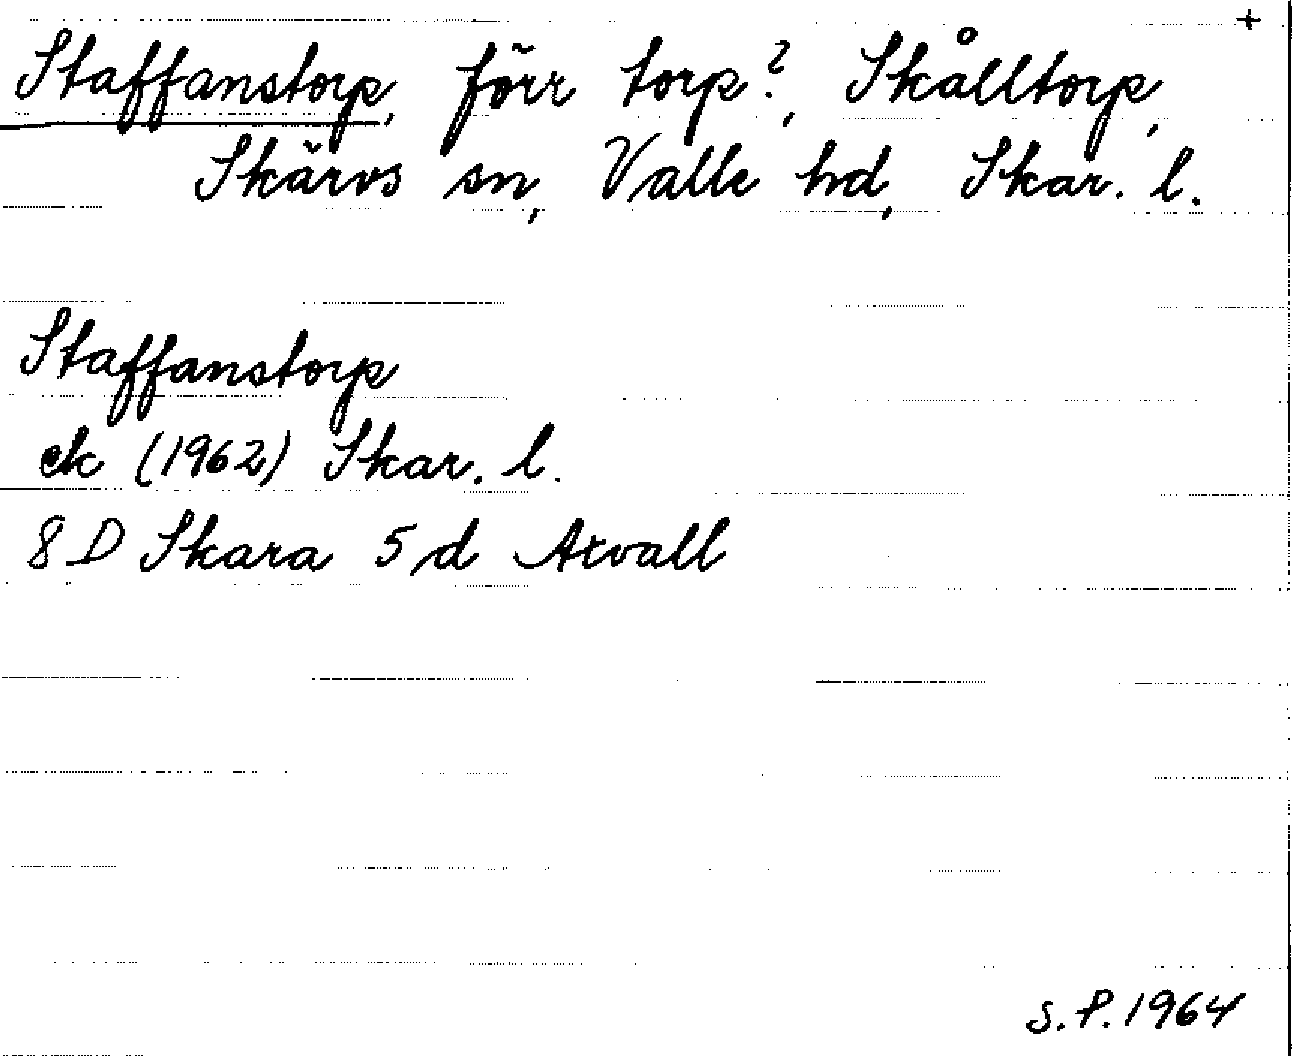 +
Staffanstorp, förr torp?, Skålltorp,
Skärvs sn, Valle hd, Skar. l.
Staffanstorp
ek (1962) Skar. l.
8 D Skara 5 d Axvall
S.P. 1964